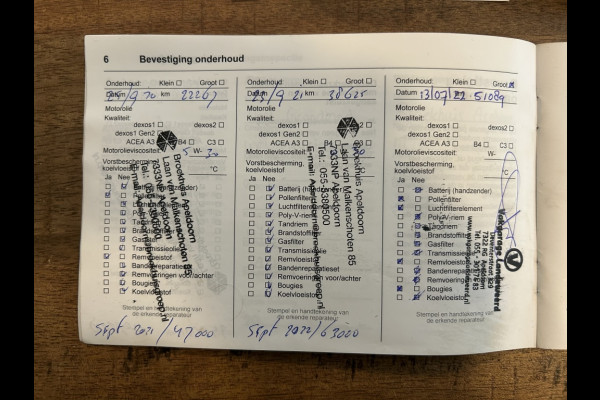 6 Bevestiging onderhoud
Onderhoud: Klein Groot
Datum 21/9 20 km 22267
Motorolie
Kwaliteit:
dexos1 dexos2
dexos1 Gen2
ACEA A3 B4 C3
Motorolieviscositeit: 5 W- 30
Vorstbescherming,
koelvloeistof °C
Ja Nee
Batterij (handzender)
Pollenfilter
Luchtfilterelement
Poly-V-riem
Tandriem
Brandstoffilter
Gasfilter
Transmissieolie
Remvloeistof
Bandenreparatieset
Remvoeringen voor/achter
Bougies
Koelvloeistof
Stempel en handtekening van
de erkende reparateur
Broekhuis Apeldoorn
Laan van Malkenschoten 85
Sept 2021/47000
Onderhoud: Klein Groot
Datum 21 km 38625
Motorolie
Kwaliteit:
dexos1 dexos2
dexos1 Gen2
ACEA A3 B4 C3
Motorolieviscositeit: W-
Vorstbescherming,
koelvloeistof °C
Ja Nee
Batterij (handzender)
Pollenfilter
Luchtfilterelement
Poly-V-riem
Tandriem
Brandstoffilter
Gasfilter
Transmissieolie
Remvloeistof
Bandenreparatieset
Remvoeringen voor/achter
Bougies
Koelvloeistof
Stempel en handtekening van
de erkende reparateur
Broekhuis Apeldoorn
Laan van Malkenschoten 85
Sept 2022/63000
Onderhoud: Klein Groot
Datum 13/07/22 51089
Motorolie
Kwaliteit:
dexos1 dexos2
dexos1 Gen2
ACEA A3 B4 C3
Motorolieviscositeit: W-
Vorstbescherming,
koelvloeistof °C
Ja Nee
Batterij (handzender)
Pollenfilter
Luchtfilterelement
Poly-V-riem
Tandriem
Brandstoffilter
Gasfilter
Transmissieolie
Remvloeistof
Bandenreparatieset
Remvoeringen voor/achter
Bougies
Koelvloeistof
Stempel en handtekening van
de erkende reparateur